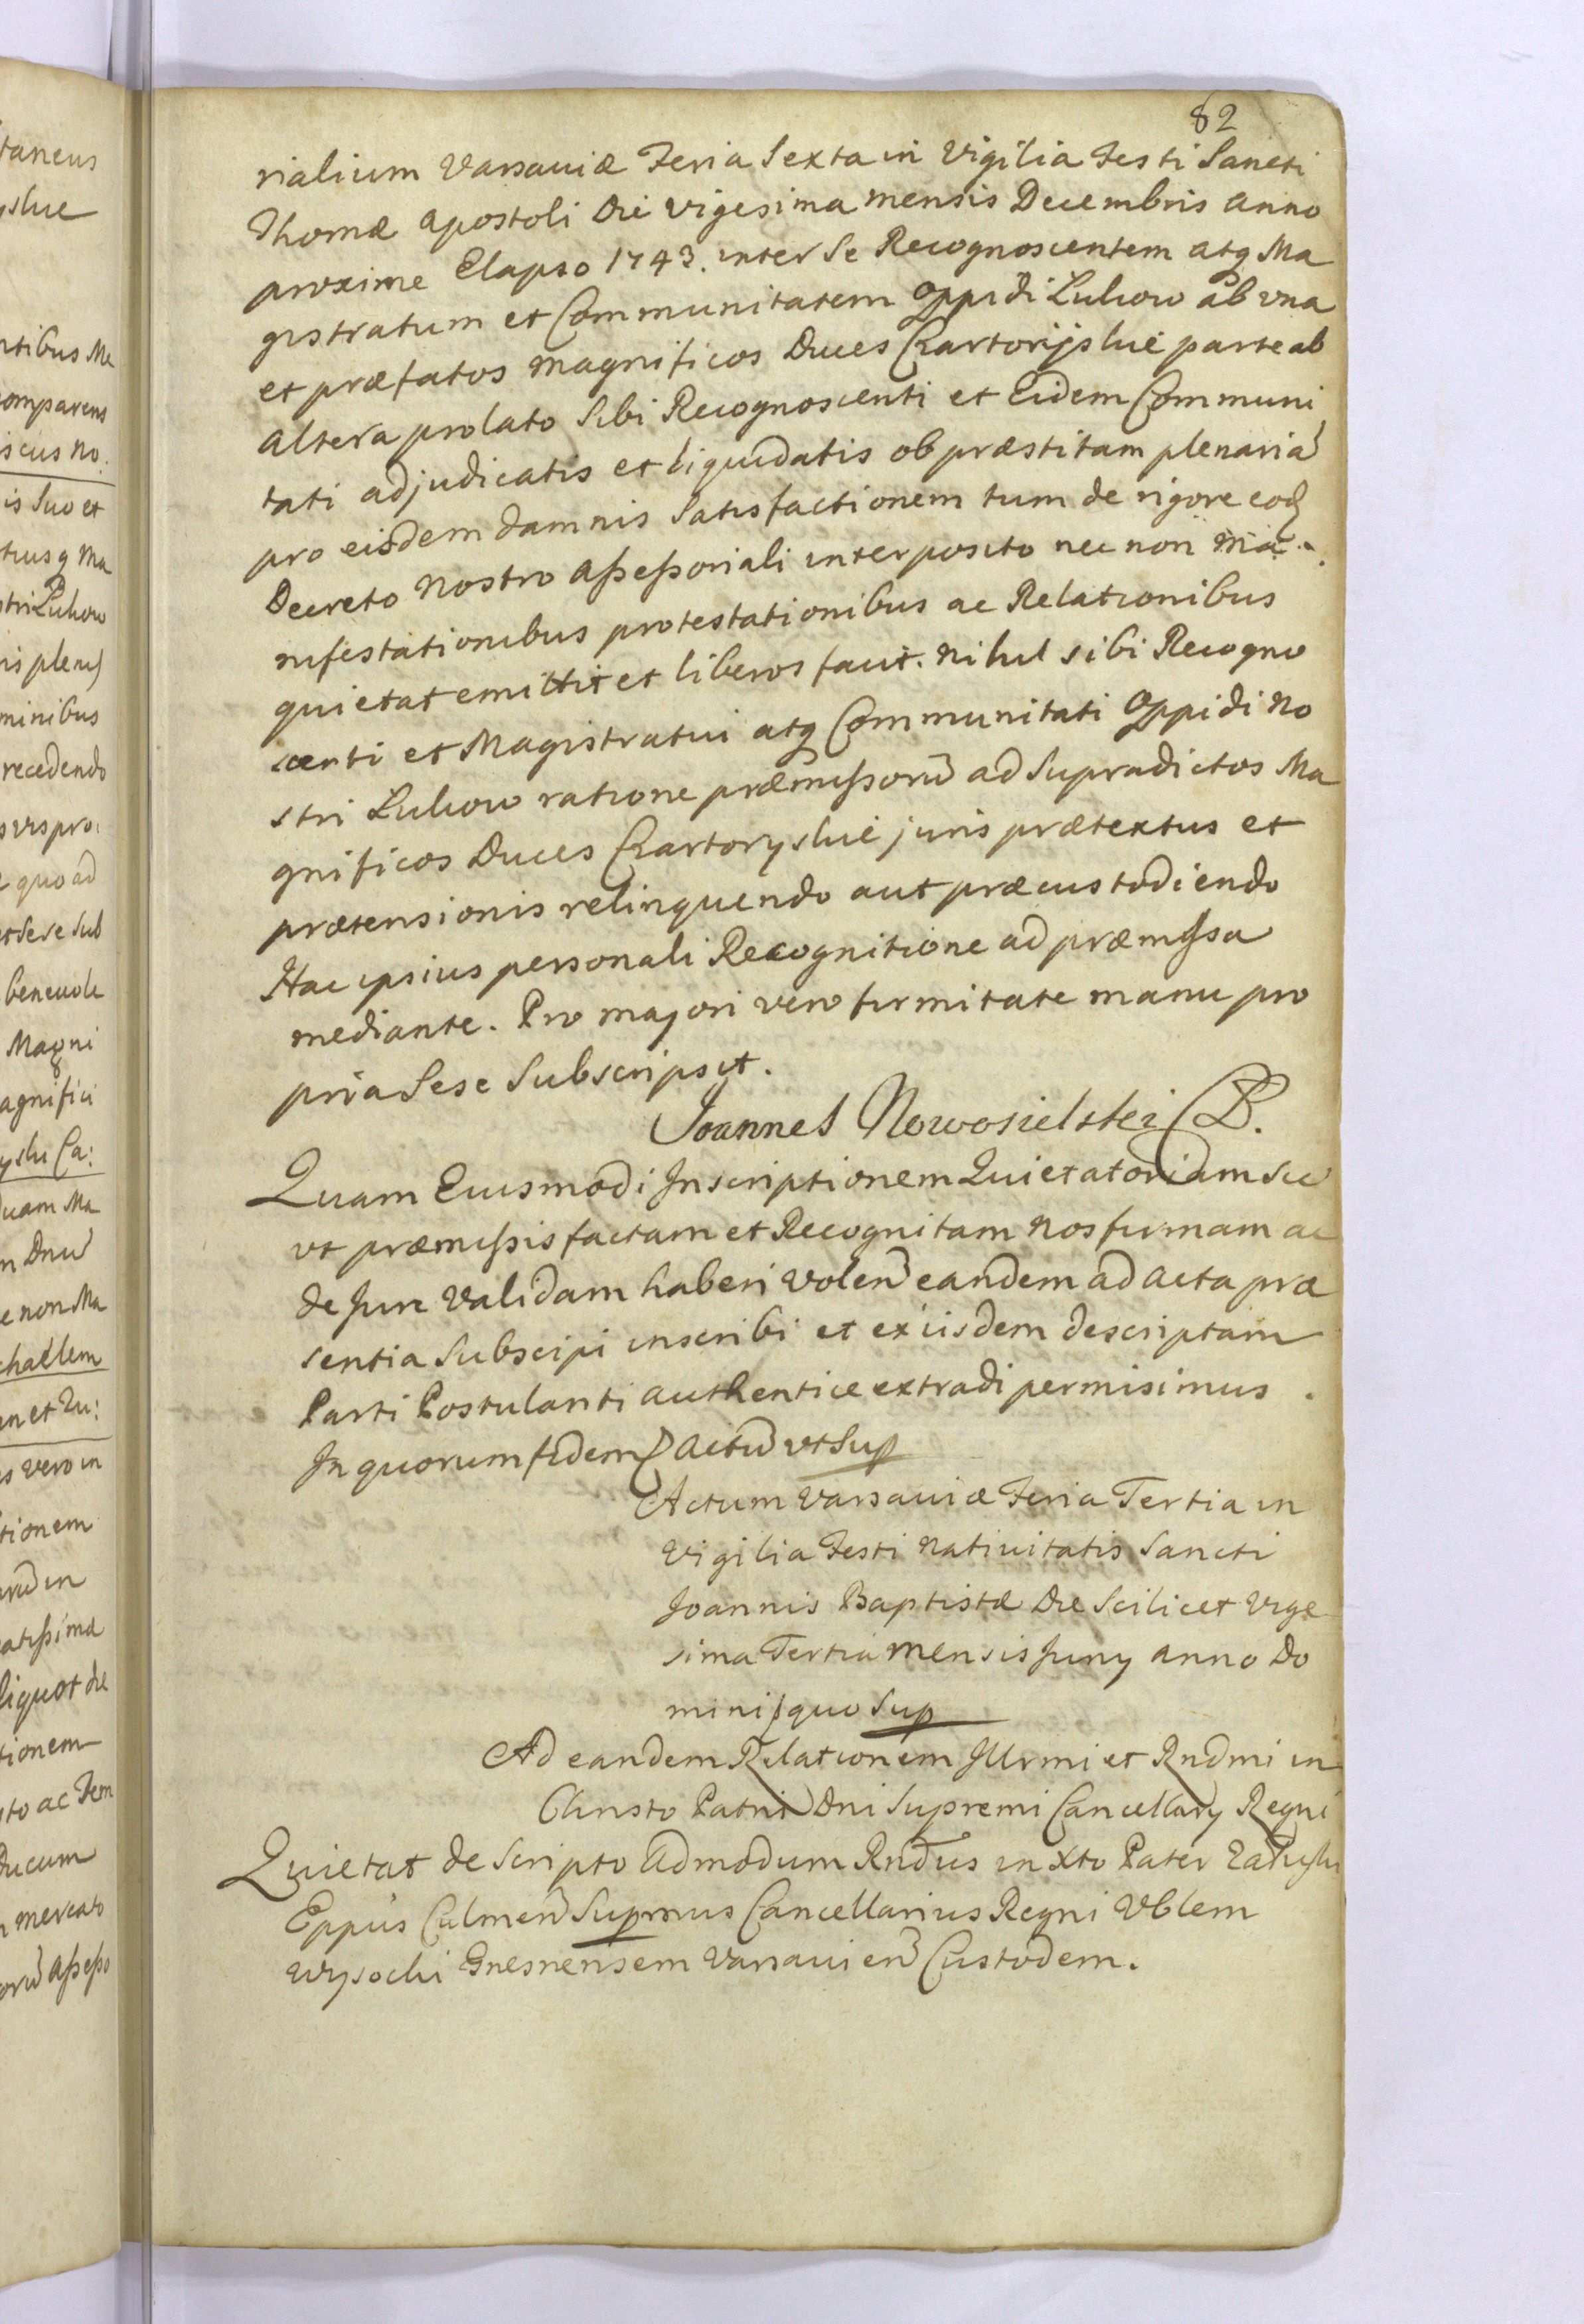 82
rialium Varsaviæ Feria Sexta in Vigilia Festi Sancti
Thomæ Apostoli Die vigesima mensis Decembris Anno
proxime Elapso 1743. inter Se Recognoscentem atq Ma
gistratum et Communitatem Oppidi Lukow ab una
et præfatos Magnificos Duces Czartoryskie parte ab
altera prolato Sibi Recognoscenti et Eidem Communi
tati adjudicatis et liquidatis ob præstitam plenariã
pro eisdem damnis Satisfactionem tum de rigore eod
Decreto Nostro Assessoriali interposito nec non Ma
nifestationibus protestationibus ac Relationibus
quietat emittit et liberos facit. Nihil sibi Recogno
scenti et Magistratui atq Communitati Oppidi No
stri Lukow ratione præmissorũ ad Supradictos Ma
gnificos Duces Czartoryskie juris prætextus et
prætensionis relinquendo aut præcustodiendo
Hac ipsius personali Recognitione ad præmissa
mediante. Pro majori vero firmitate manu pro
pria Sese Subscripsit.
Joannes Nowosielski
Quam Eiusmodi Inscriptionem Quietatoriam sic
ut præmissis factam et Recognitam Nos firmam ac
de Jure Validam haberi Volen eandem ad Acta præ
sentia Subscipi inscribi et ex iisdem descriptam
Parti Postulanti authentice extradi permisimus.
In quorum fidem Actũ ut Sup
Actum Varsaviæ Feria Tertia in
Vigilia Festi Nativitatis Sancti
Joannis Baptistæ Die Scilicet Vige
sima Tertia Mensis Juny Anno Do
mini quo Sup
Ad eandem Relationem Illrmi et Rndmi in
Christo Patris Dni Supremi Cancellary Regni
Quietat de Scripto Admodum Rndus in Xto Pater Załuski
Eppus Culmen Supmus Cancellarius Regni Vblem
Wysocki Gnesnensem Varsavien Custodem.